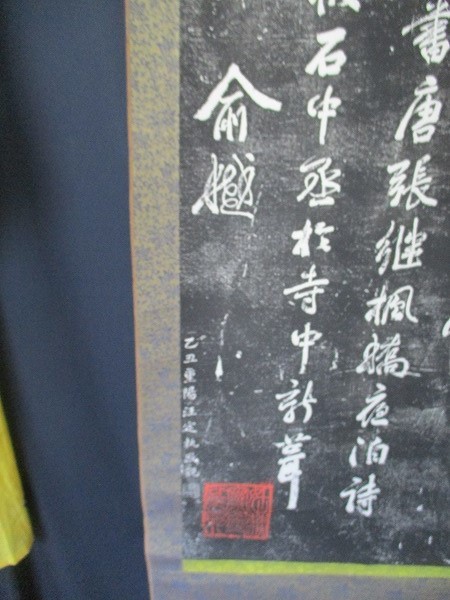 書唐張继楓橋夜泊詩
石中丞於寺中新葺
俞樾
乙丑重陽汪定執